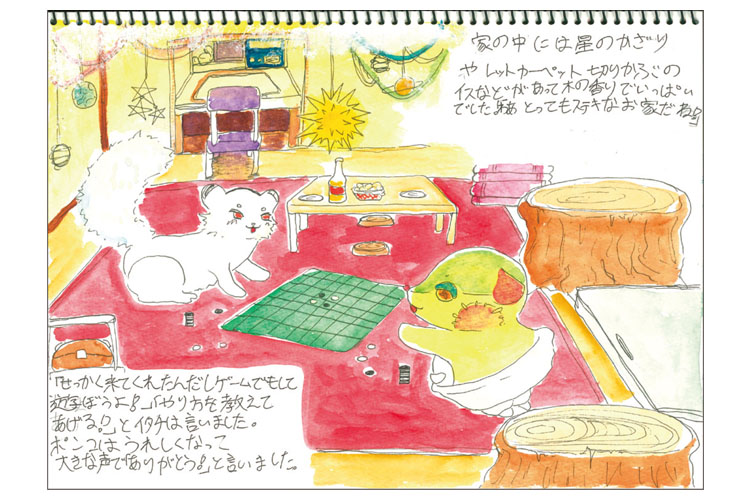 家の中には星のかざり
や レットカーペット 切りかぶの
イスなどがあって木の香りでいっぱい
でした。「とってもステキなお家だね。」
「せっかく来てくれたんだしゲームでもして
遊ぼうよ。」「やり方を教えて
あげる。」とイタチは言いました。
ポンコはうれしくなって
大きな声で「ありがとう。」と言いました。